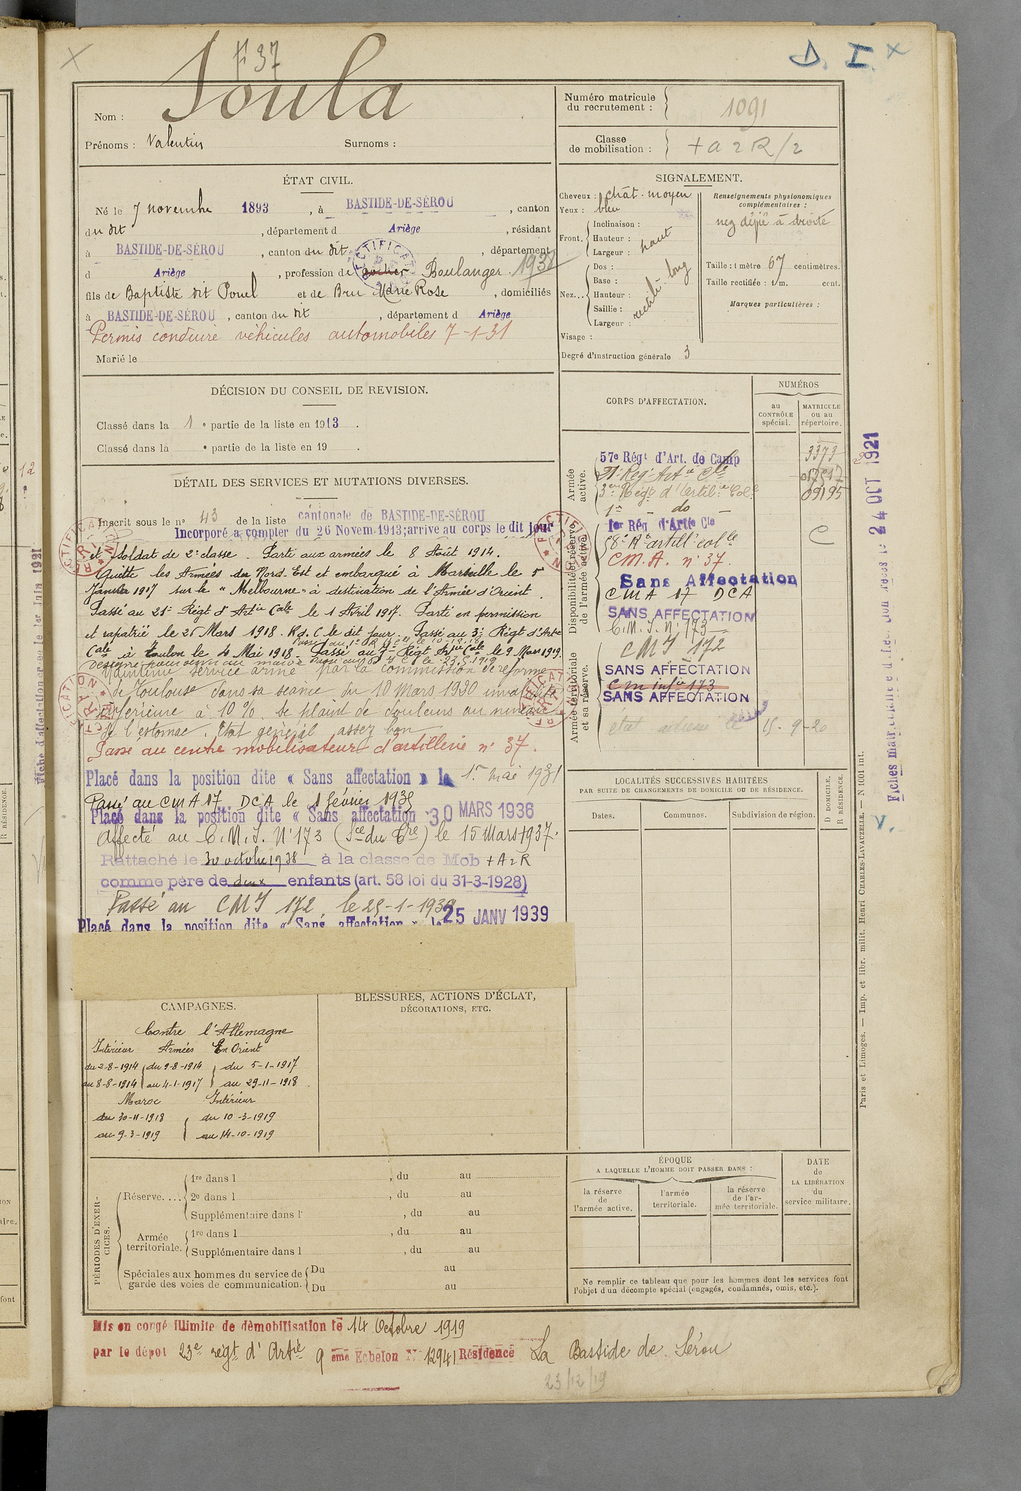 F 37
D. I. X
Soula
Nom :
Prénoms : Valentin Surnoms :
Numéro matricule du recrutement : 1091
Classe de mobilisation : + a 2 R/2
ÉTAT CIVIL.
Né le 7 novembre 1893, à BASTIDE-DE-SÉROU, canton
du dit, département d Ariège, résidant
à BASTIDE-DE-SÉROU, canton du dit, département
d Ariège, profession de Boulanger
fils de Baptiste dit Pouel et de Bru Marie Rose, domiciliés
à BASTIDE-DE-SÉROU, canton du dit, département d Ariège
Permis conduire véhicules automobiles 7-1-31
Marié le
SIGNALEMENT.
Cheveux : chât-moyen
Yeux : bleu
Inclinaison :
Front. Hauteur : haut
Largeur :
Dos :
Base :
Nez... Hauteur : rectili-long
Saillie :
Largeur :
Visage :
Degré d'instruction générale 3
Renseignements physionomiques complémentaires :
nez déjeté à droite
Taille : 1 mètre 67 centimètres.
Taille rectifiée : 1 m. cent.
Marques particulières :
DÉCISION DU CONSEIL DE REVISION.
Classé dans la 1 e partie de la liste en 1913.
Classé dans la e partie de la liste en 19 .
DÉTAIL DES SERVICES ET MUTATIONS DIVERSES.
Inscrit sous le no 43 de la liste cantonale de BASTIDE-DE-SÉROU
Incorporé à compter du 26 Novem. 1913; arrive au corps le dit jour
et soldat de 2e classe. Parti aux armées le 8 Août 1914.
Quitte les Armées du Nord-Est et embarqué à Marseille le 5
Janvier 1917 sur le "Melbourne" à destination de l'Armée d'Orient.
Passé au 21e Régt d'Artie Cale le 1 Avril 1917. Parti en permission
et rapatrié le 25 Mars 1918. R.d.C le dit jour. Passé au 3e Régt d'Artie
Cale à Toulon le 4 Mai 1918. Passé au 1er Régt Artie Cale le 9 Mars 1919.
Maintenu service armé par la commission de réforme
de Toulouse dans sa séance du 18 Mars 1930 invalidité
inférieure à 10 %. se plaint de douleurs au niveau
de l'estomac. Etat général assez bon
Passé au centre mobilisateur d'artillerie n° 37.
Placé dans la position dite « Sans affectation » le 1er mai 1931
Passé au CMA 17 DCA le 1 février 1935
Placé dans la position dite « Sans affectation 30 MARS 1936
Affecté au C.M.I. N°173 (Sce du Gre) le 15 Mars 1937.
Rattaché le 30 octobre 1938 à la classe de Mob + A 2 R
comme père de deux enfants (art. 58 loi du 31-3-1928)
Passé au CMI 172, le 25-1-1939
Placé dans la position dite « Sans affectation » le 25 JANV 1939
CORPS D'AFFECTATION.
NUMÉROS
au CONTRÔLE spécial.
MATRICULE ou au répertoire.
Armée active.
57e Régt d'Art. de Camp 3373
21e Régt Artie Cle
3e Régt d'Artil. Col. 09195
1er — do —
Disponibilité et réserve de l'armée active.
1er Rég d'Artie Cle
C
C.M.A. n° 37.
Sans Affectation
CMA 17 DCA
SANS AFFECTATION
C.M.I. n°173
Armée territoriale et sa réserve.
CMI 172
SANS AFFECTATION
Cm Infie 173
SANS AFFECTATION
15-9-20
Fiches matr. 24 OCT 1921
LOCALITÉS SUCCESSIVES HABITÉES
PAR SUITE DE CHANGEMENTS DE DOMICILE OU DE RÉSIDENCE.
Dates. Communes. Subdivision de région. D DOMICILE. R RÉSIDENCE.
V.
CAMPAGNES.
Contre l'Allemagne
Intérieur Armées En Orient
du 2-8-1914 du 9-8-1914 du 5-1-1917
au 8-8-1914 au 4-1-1917 au 29-11-1918
Maroc Intérieur
du 30-11-1918 du 10-3-1919
au 9-3-1919 au 14-10-1919
BLESSURES, ACTIONS D'ÉCLAT,
DÉCORATIONS, ETC.
PÉRIODES D'EXERCICES.
Réserve.... 1re dans l , du au
2e dans l , du au
Supplémentaire dans l' , du au
Armée territoriale. 1re dans l , du au
Supplémentaire dans l , du au
Spéciales aux hommes du service de garde des voies de communication. Du au
Du au
ÉPOQUE
A LAQUELLE L'HOMME DOIT PASSER DANS :
la réserve de l'armée active.
l'armée territoriale.
la réserve de l'armée territoriale.
DATE de LA LIBÉRATION du service militaire.
Ne remplir ce tableau que pour les hommes dont les services font l'objet d'un décompte spécial (engagés, condamnés, omis, etc.).
Paris et Limoges. — Imp. et libr. milit. Henri CHARLES-LAVAUZELLE. — N 1001 int.
Mis en congé illimité de démobilisation le 14 Octobre 1919
par le dépôt 23e régt d'Artie 9 ème Echelon N° 12941 Résidence La Bastide de Sérou
23/12/19